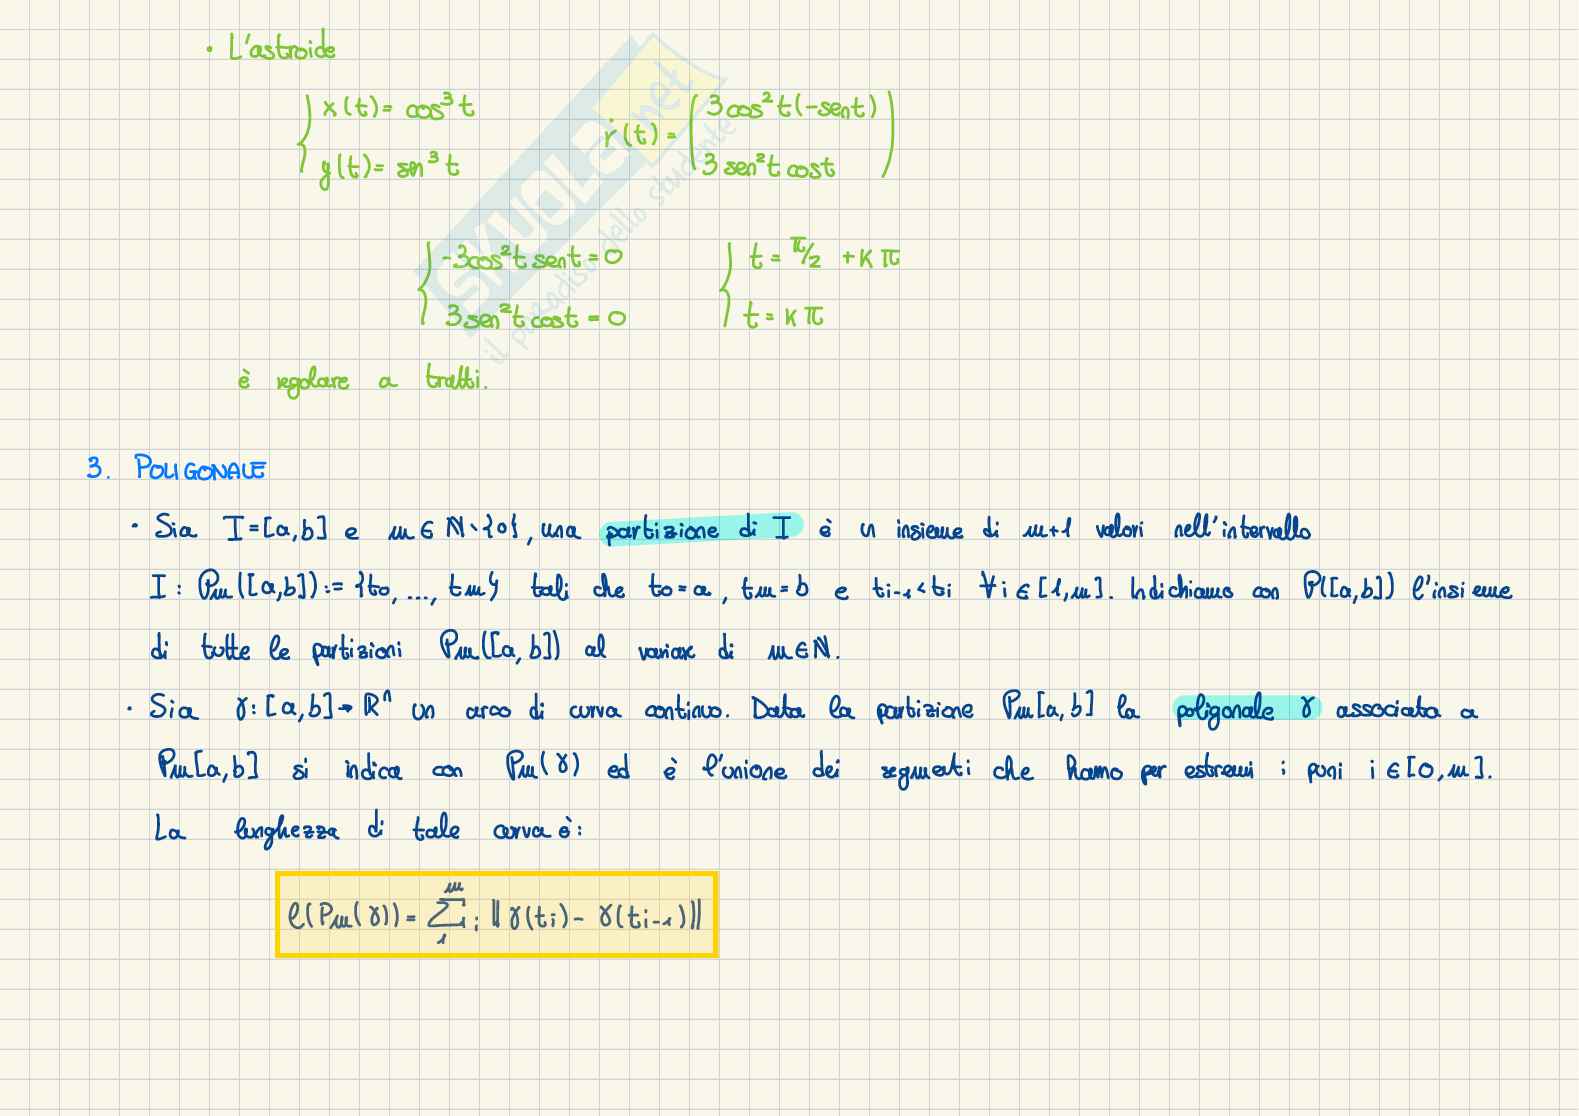 • L'astroide
{ x(t) = cos³t
y(t) = sen³t
ṙ(t) = ( 3cos²t(-sent)
3sen²t cost )
{ -3cos²t sent = 0
3sen²t cost = 0
{ t = π/2 + kπ
t = kπ
è regolare a tratti.
3. POLIGONALE
• Sia I=[a,b] e m∈ℕ∖{0}, una partizione di I è un insieme di m+1 valori nell'intervallo
I: Pm([a,b]):= {to, ..., tm} tali che to=a, tm=b e ti-1<ti ∀i∈[1,m]. Indichiamo con P([a,b]) l'insieme
di tutte le partizioni Pm([a,b]) al variare di m∈ℕ.
• Sia γ: [a,b]→ℝⁿ un arco di curva continuo. Data la partizione Pm[a,b] la poligonale γ associata a
Pm[a,b] si indica con Pm(γ) ed è l'unione dei segmenti che hanno per estremi i puni i∈[0,m].
La lunghezza di tale curva è:
ℓ(Pm(γ)) = Σ₁ᵐ i ||γ(ti) - γ(ti-1)||
SKUOLA.net
il paradiso dello studente